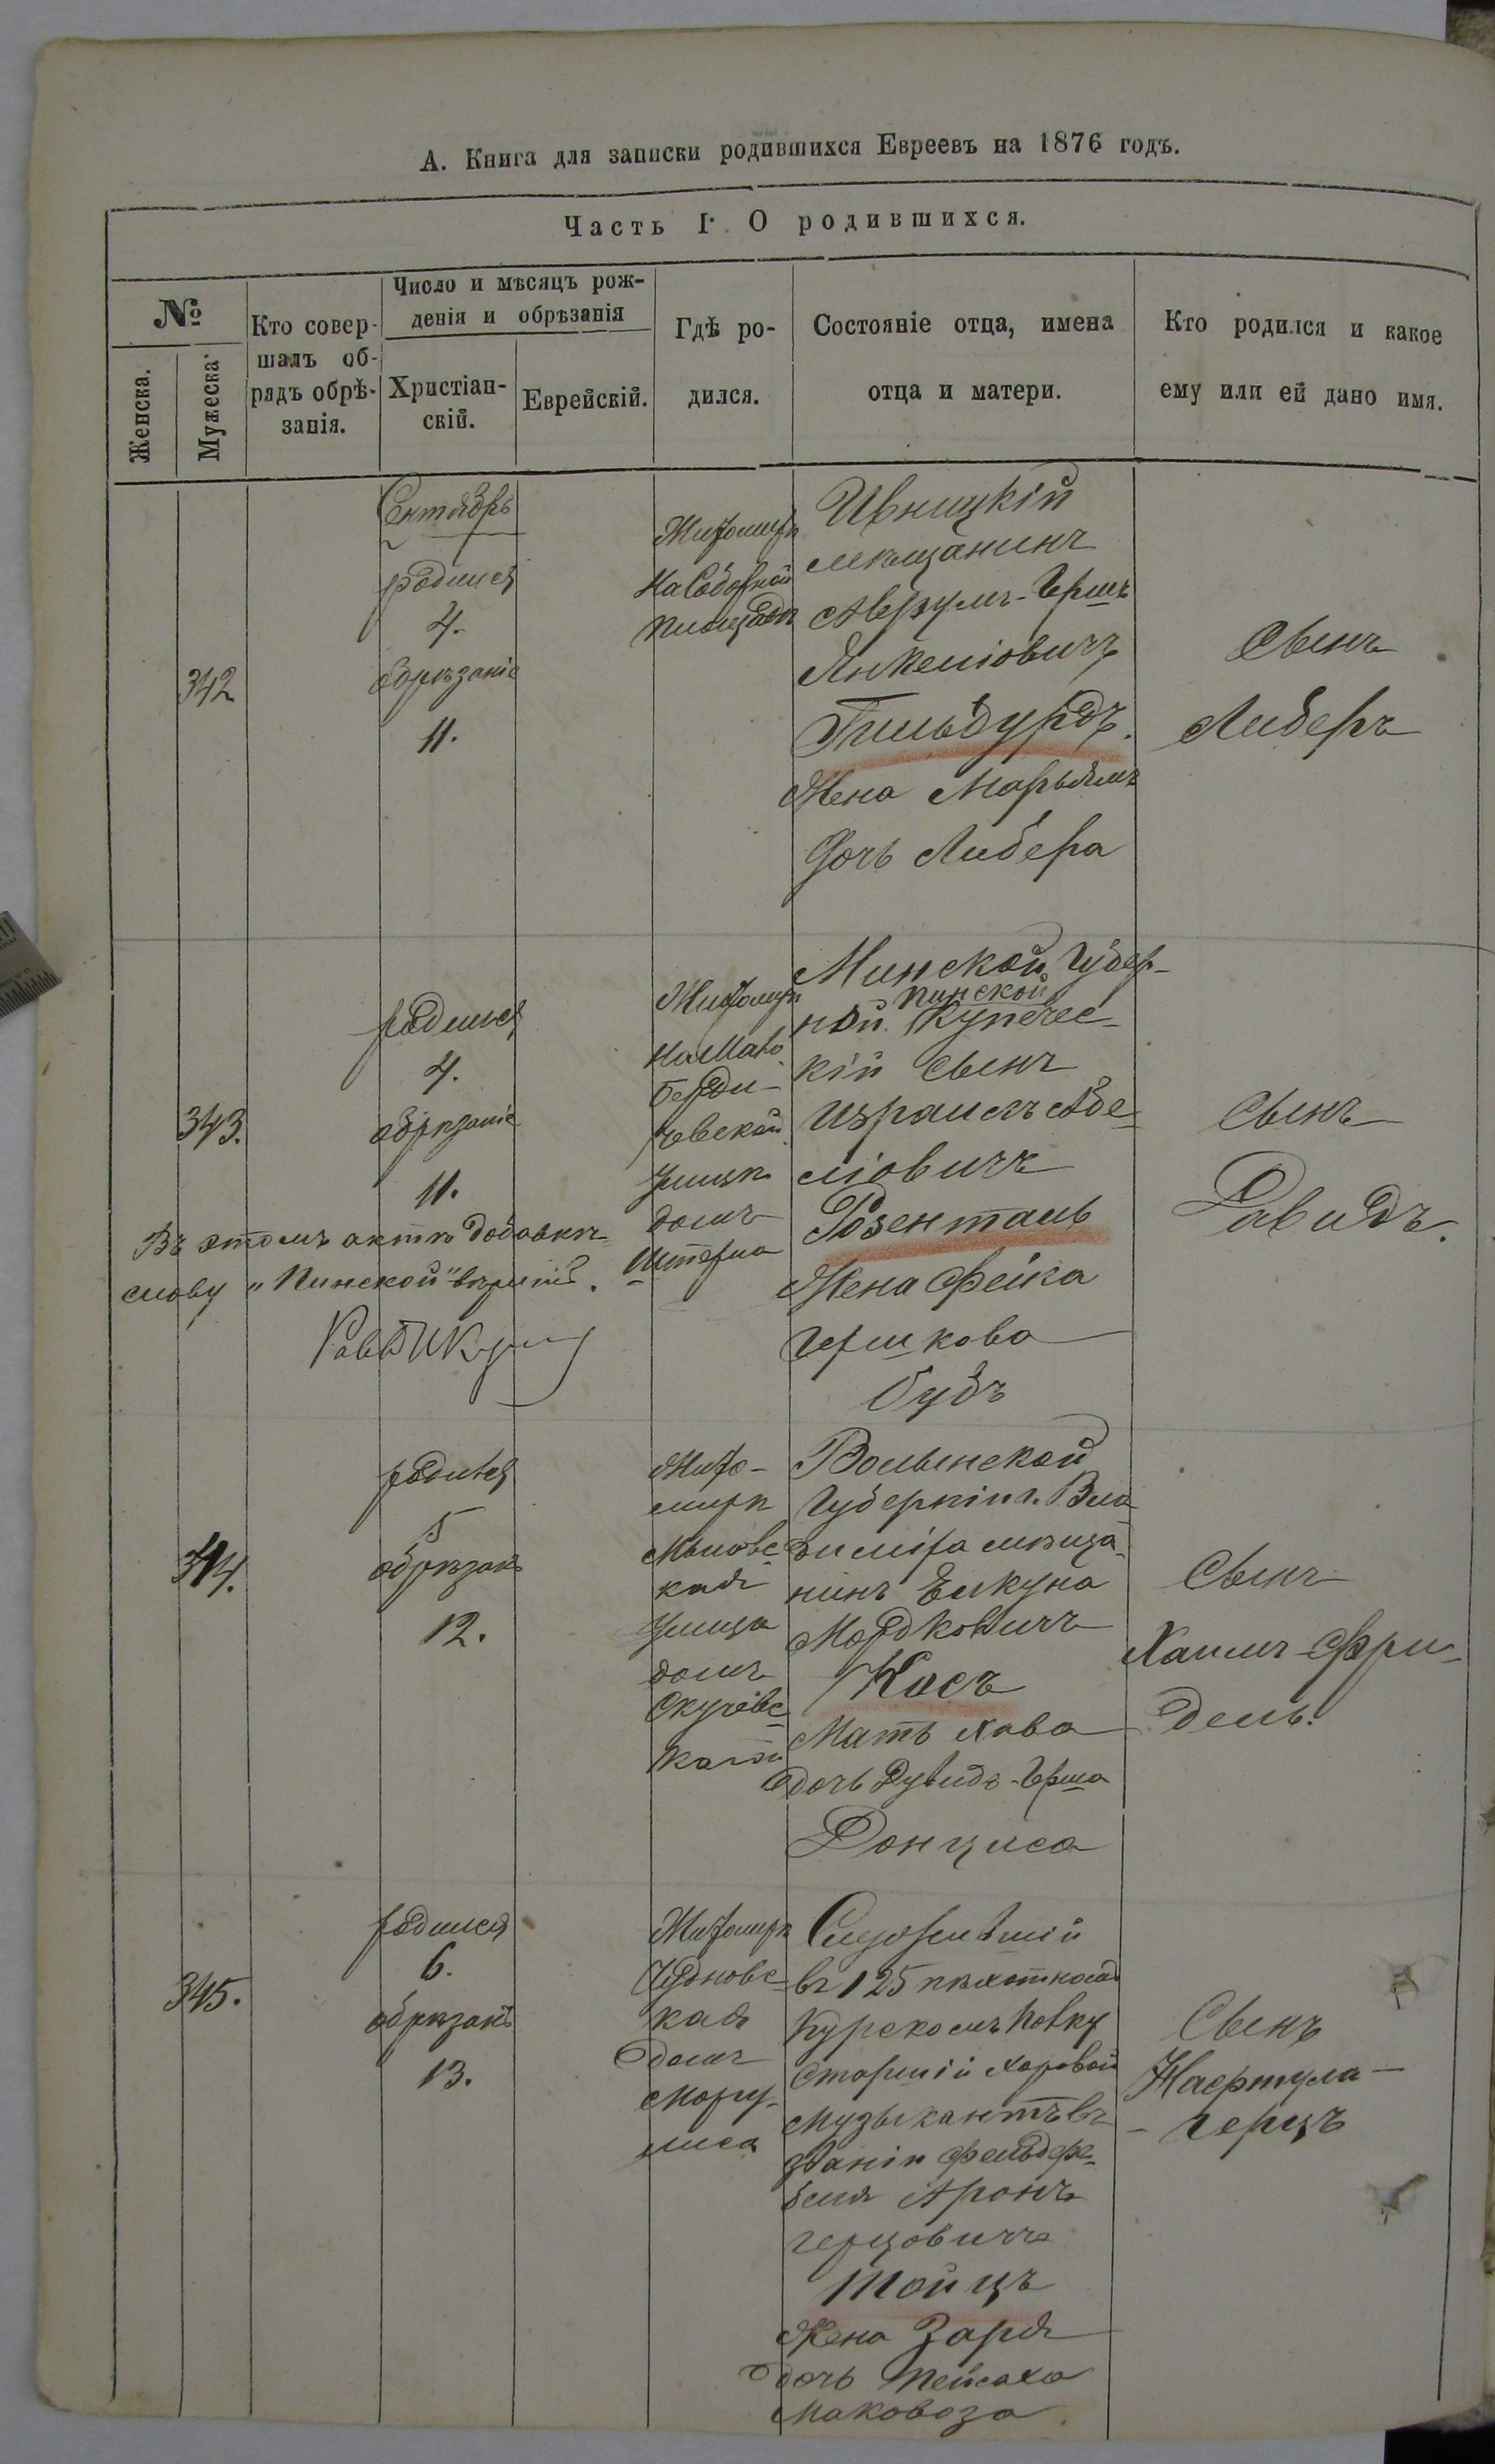 А. Книга для записки родившихся Евреевъ на 1876 годъ.
Часть I. О родившихся.
№
Женска.
Мужеска
Кто совер-
шалъ об-
рядъ обрѣ-
занія.
Число и мѣсяцъ рож-
денія и обрѣзанія
Христіан-
скій.
Еврейскій.
Гдѣ ро-
дился.
Состояніе отца, имена
отца и матери.
Кто родился и какое
ему или ей дано имя.
342
Сентябрь
родился
4.
обрѣзаніе
11.
Житомирѣ
На Соборной
площадѣ
Ивницкій
мѣщанинъ
Аврумъ-Гершъ
Янкеліовичъ
Гильбурдъ.
Жена Марьямъ
Дочь Либера
Сынъ
Либеръ
343.
родился
4.
обрѣзаніе
11.
Житомирѣ
На Мало
Берди-
чевской
улицѣ
домъ
Штерна
Минской Губер-
ніи. Пинской
Купечес-
кій сынъ
Израиль Абе-
ліовичъ
Розенталь
Жена Фейга
Гершкова
Будъ
Сынъ
Давидъ.
Въ этомъ актѣ добавкѣ
слову "Пинской" вѣрить.
344.
родился
5
обрѣзанъ
12.
Жито-
мирѣ
кая
улица
домъ
Волынской
Губерніи г. Вла-
диміра мѣща-
нинъ
Мордковичъ
Косъ
Мать Хава
дочь Дувидъ-Герша
Донциса
Сынъ
Хаимъ-Фри-
дель.
345.
родился
6.
обрѣзанъ
13.
Житомирѣ
Чудновс-
кая
домъ
Служившій
въ 125 пѣхотномъ
Курскомъ полку
Старшій хоровой
музыкантъ въ
званіи фельдфе-
беля Аронъ
Герцовичъ
Тойцъ
Жена Зара
дочь Пейсаха
Маковоза
Сынъ
Нафтула-
-Герцъ